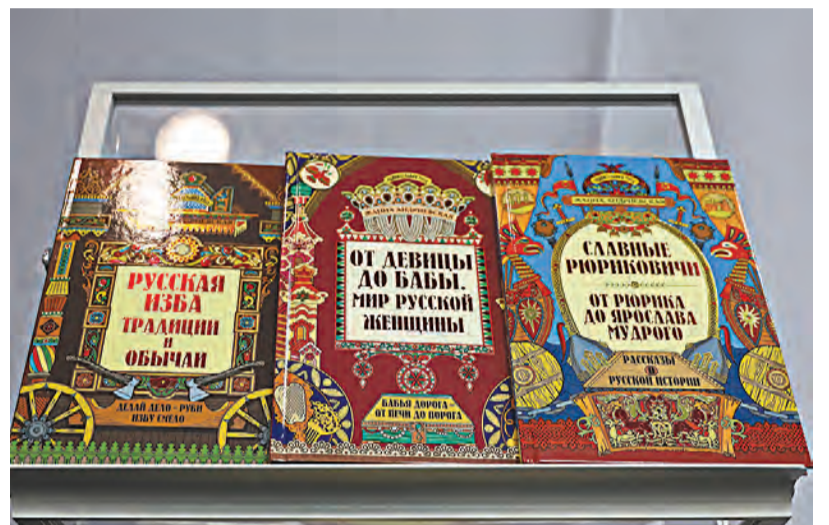 РУССКАЯ
ИЗБА
ТРАДИЦИИ
И
ОБЫЧАИ
ДЕЛАЙ ДЕЛО - РУБИ
ИЗБУ СМЕЛО
ОТ ДЕВИЦЫ
ДО БАБЫ.
МИР РУССКОЙ
ЖЕНЩИНЫ
БАБЬЯ ДОРОГА -
ОТ ПЕЧИ ДО ПОРОГА
СЛАВНЫЕ
РЮРИКОВИЧИ
ОТ РЮРИКА
ДО ЯРОСЛАВА
МУДРОГО
РАССКАЗЫ
О
РУССКОЙ ИСТОРИИ